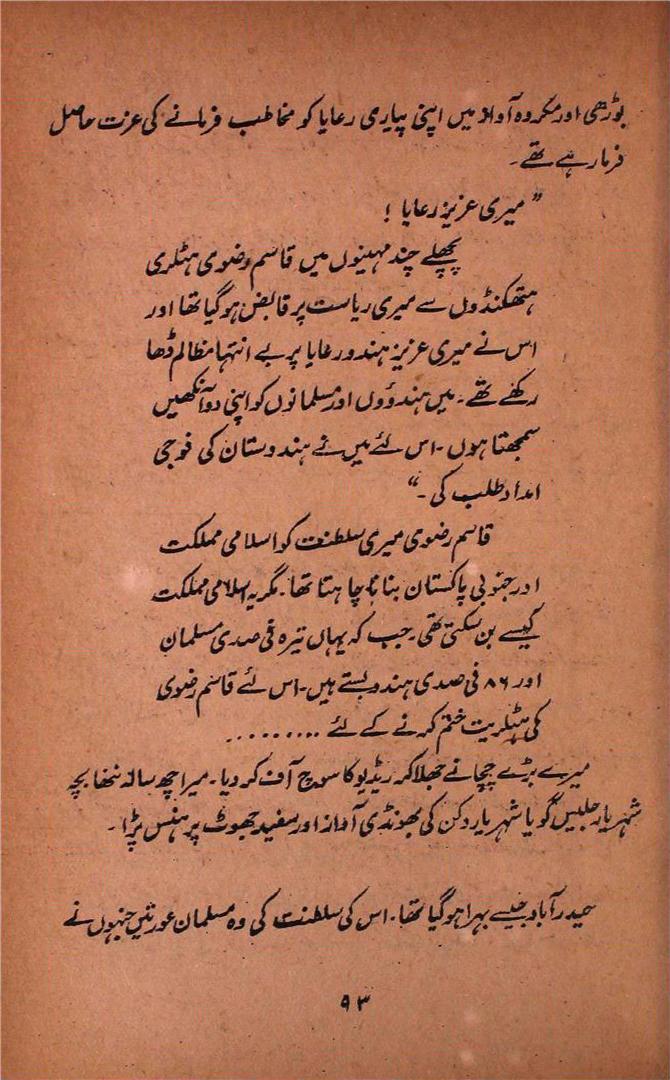 بوڑھی اور مکروہ آواز میں اپنی پیاری رعایا کو مخاطب فرمانے کی عزت حاصل
فرما رہے تھے۔
” میری عزیز رعایا !
پچھلے چند مہینوں میں قاسم رضوی ہٹلری
ہتھکنڈوں سے میری ریاست پر قابض ہو گیا تھا اور
اس نے میری عزیز ہندو رعایا پر بے انتہا مظالم ڈھا
رکھے تھے۔ میں ہندوؤں اور مسلمانوں کو اپنی دو آنکھیں
سمجھتا ہوں ۔ اس لئے میں نے ہندوستان کی فوجی
امداد طلب کی ۔“
قاسم رضوی میری سلطنت کو اسلامی مملکت
اور جنوبی پاکستان بنانا چاہتا تھا۔ مگر یہ اسلامی مملکت
کیسے بن سکتی تھی۔ جب کہ یہاں تیرہ فی صدی مسلمان
اور ۸۶ فی صدی ہندو بستے ہیں۔ اس لئے قاسم رضوی
کی ہٹلریت ختم کرنے کے لئے .........
میرے بڑے چچا نے جھلا کر ریڈیو کا سوئچ آف کر دیا۔ میرا چھ سالہ ننھا بچہ
شہریار جلیس گویا شہریار دکن کی بھونڈی آواز اور سفید جھوٹ پر ہنس پڑا۔
حیدرآباد جیسے بہرا ہو گیا تھا۔ اس کی سلطنت کی وہ مسلمان عورتیں جنہوں نے
۹۳